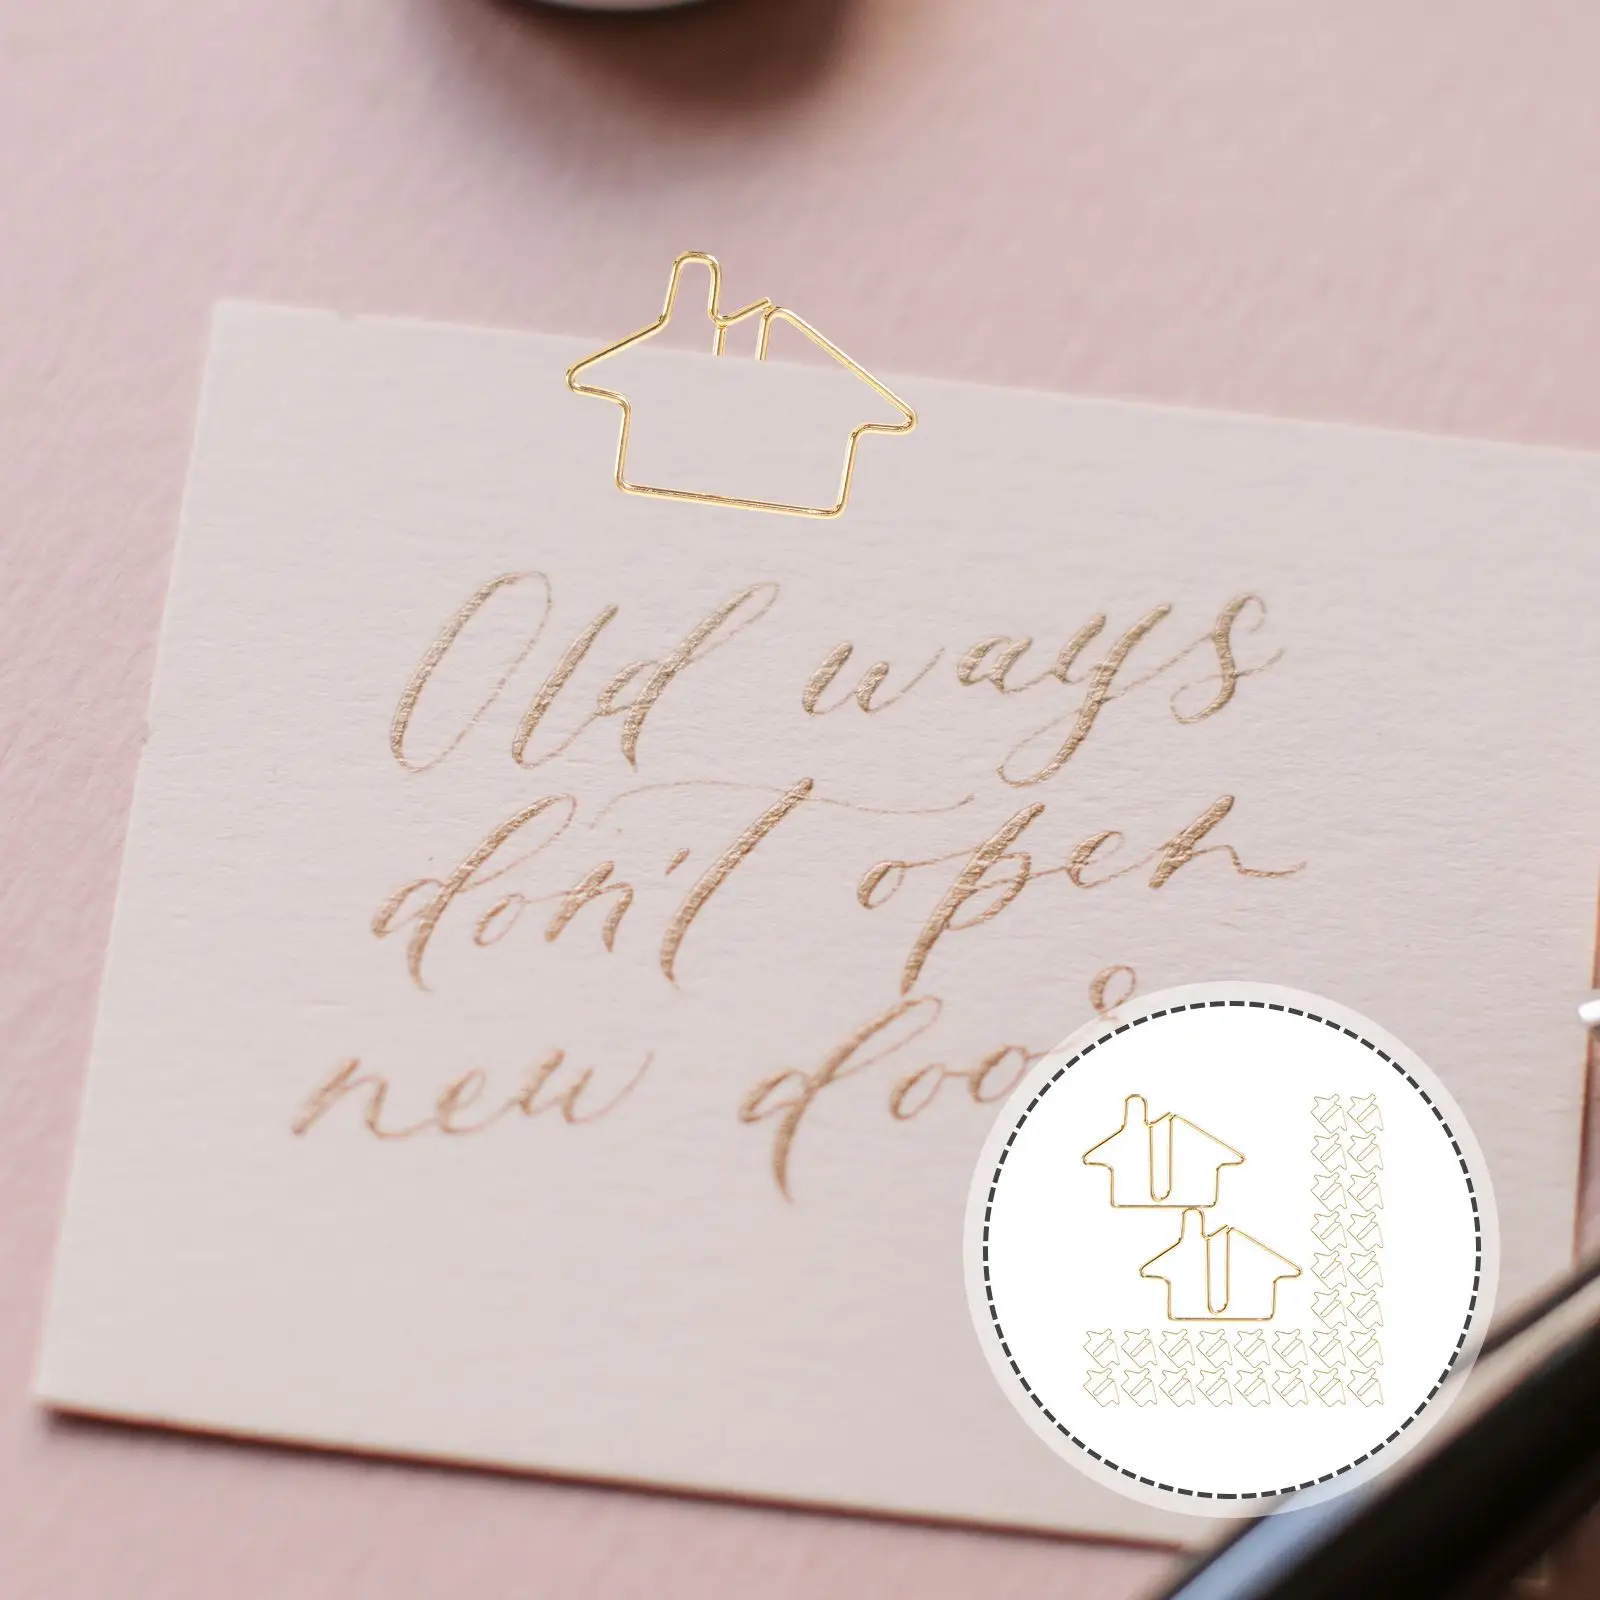 Old ways
don't open
new doo